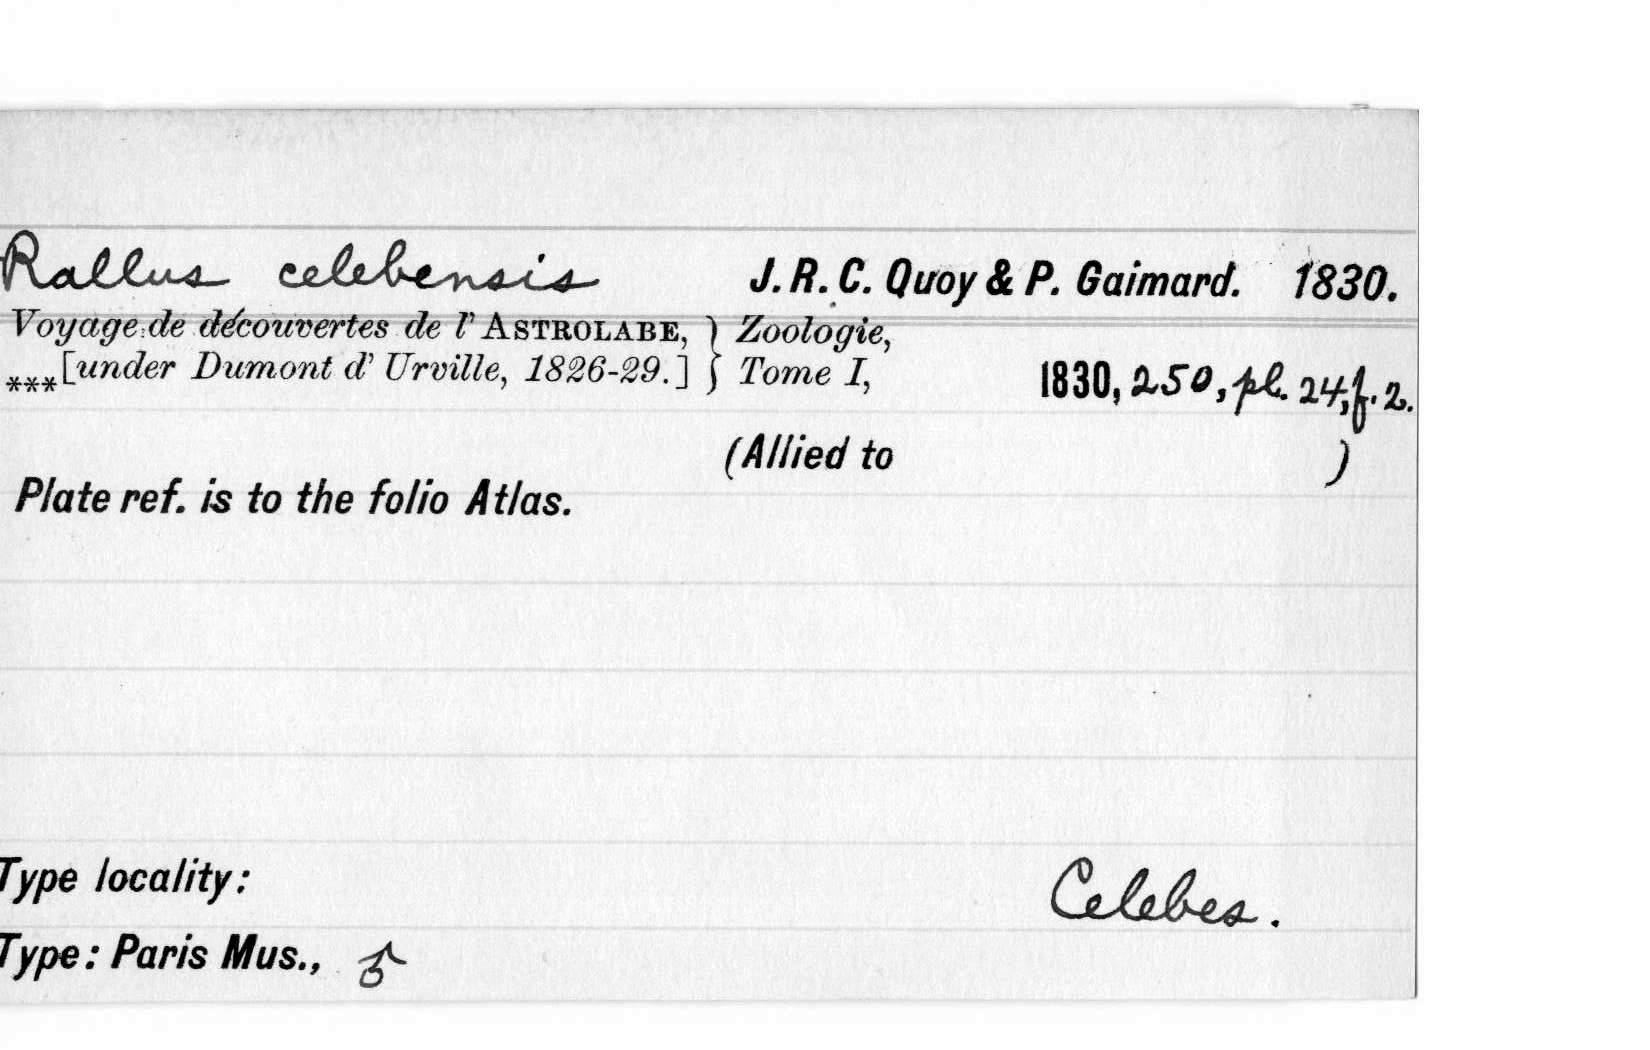 Rallus celebensis J. R. C. Quoy & P. Gaimard. 1830.
Voyage de découvertes de l' ASTROLABE, } Zoologie,
***[under Dumont d' Urville, 1826-29.] } Tome I, 1830, 250, pl. 24, f. 2.
(Allied to )
Plate ref. is to the folio Atlas.
Type locality: Celebes.
Type: Paris Mus., ♂